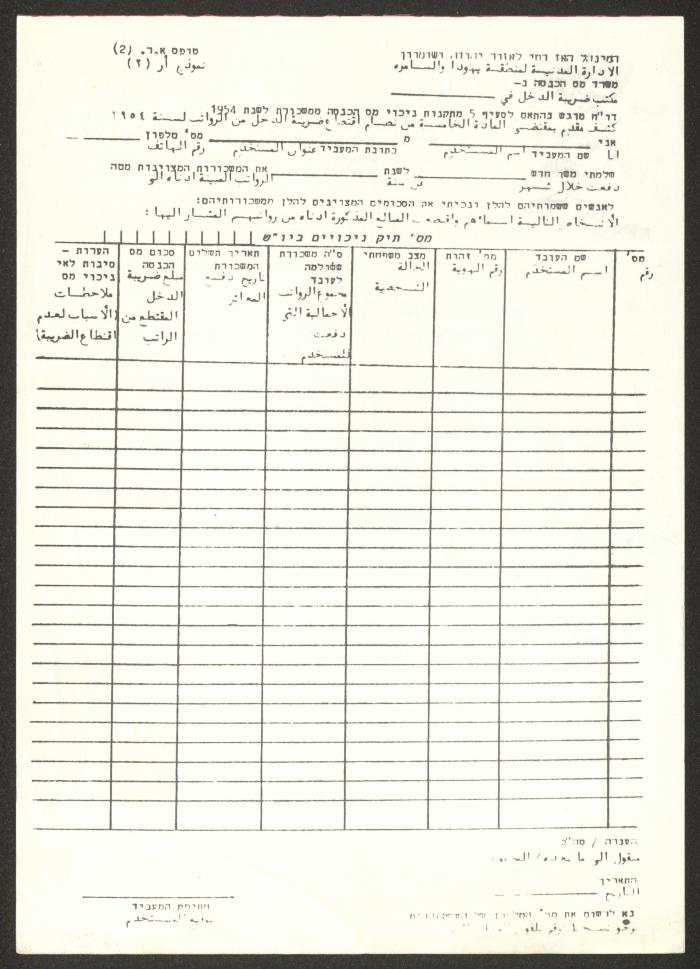 טופס א.ר. (2)
نموذج أر (٢)
המינהל האזרחי לאזור יהודה ושומרון
الادارة المدنية لمنطقة يهودا والسامره
משרד מס הכנסה ב-
مكتب ضريبة الدخل في
דו"ח מוגש בהתאם לסעיף 5 מתקנות ניכוי מס הכנסה ממשכורת לשנת 1954
كشف مقدم بمقتضى المادة الخامسة من نظام اقتطاع ضريبة الدخل من الرواتب لسنة ١٩٥٤
אני מ מס' טלפון
انا שם המעביד اسم المستخدم כתובת המעביד عنوان المستخدم رقم الهاتف
שלמתי משך חדש לשנת את המשכורות המצוינות מטה
دفعت خلال شهر عن سنة الرواتب المبينة ادناه الى
לאנשים ששמותיהם להלן וניכיתי את הסכומים המצוינים להלן ממשכורותיהם:
الأشخاص التالية اسماؤهم واقتطعت المبالغ المذكورة ادناه من رواتبهم المشار اليها:
מס' תיק ניכויים ביו"ש
מס'
رقم
שם העובד
اسم المستخدم
מס' זהות
رقم الهوية
מצב משפחתי
الحالة
الشخصية
ס"ה משכורת
ששולמה
לעובד
مجموع الرواتب
الاجمالية التي
دفعت
للمستخدم
תאריך תשלום
המשכורת
تاريخ دفع
المعاش
סכום מס
הכנסה
مبلغ ضريبة
الدخل
المقتطع من
الراتب
הערות -
סיבות לאי
ניכוי מס
ملاحظات
(الأسباب لعدم
اقتطاع الضريبة)
העברה / סה"כ
منقول الى ما بعده /
התאריך
التاريخ
חתימת המעביד
توقيع المستخدم
נא לרשום את מס'